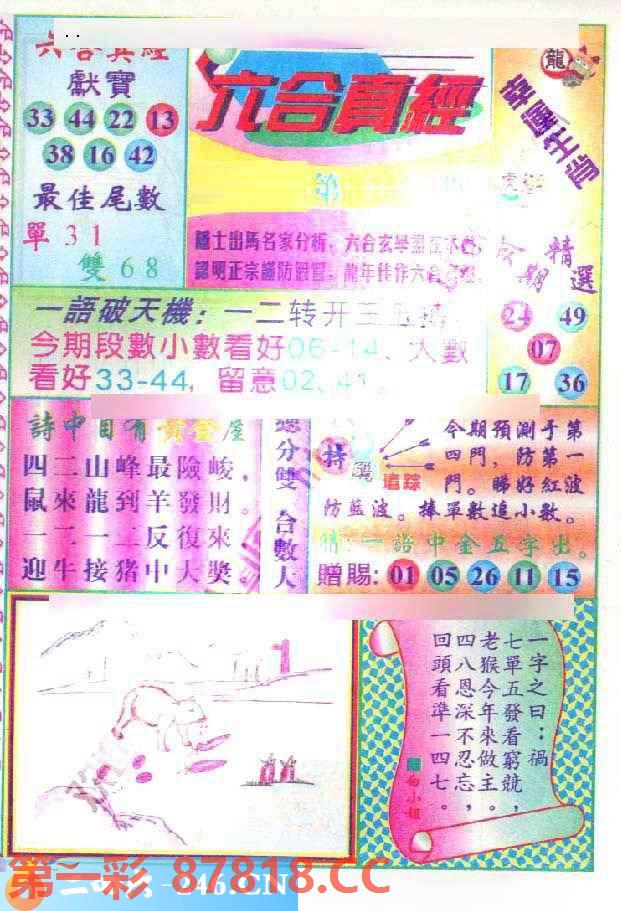 六合真經
獻寶
33 44 22 13
38 16 42
最佳尾數
單31
雙68
六合真經
第
龍
隱士出馬名家分析,六合玄學盡在本
認明正宗謹防假冒,龍年佳作六合
期
精選
24 49
07
17 36
一語破天機:一二转开三五
今期段數小數看好06-14、大數
看好33-44,留意02、41。
詩中自有黃金屋
四二山峰最險峻,
鼠來龍到羊發財。
一二一二反復來
迎牛接豬中大獎。
總分雙 合數大
特
追踪
今期預測于第
四門,防第一
門。睇好紅波
防藍波。捧單數追小數。
猜:一語中金五字出。
贈賜:01 05 26 11 15
1
一字之曰:禍
七單五發看窮兢,
老猴今年來做主。
四八恩深不忍忘,
回頭看準一四七。
白小姐
第一彩 87818.CC
-246.CN